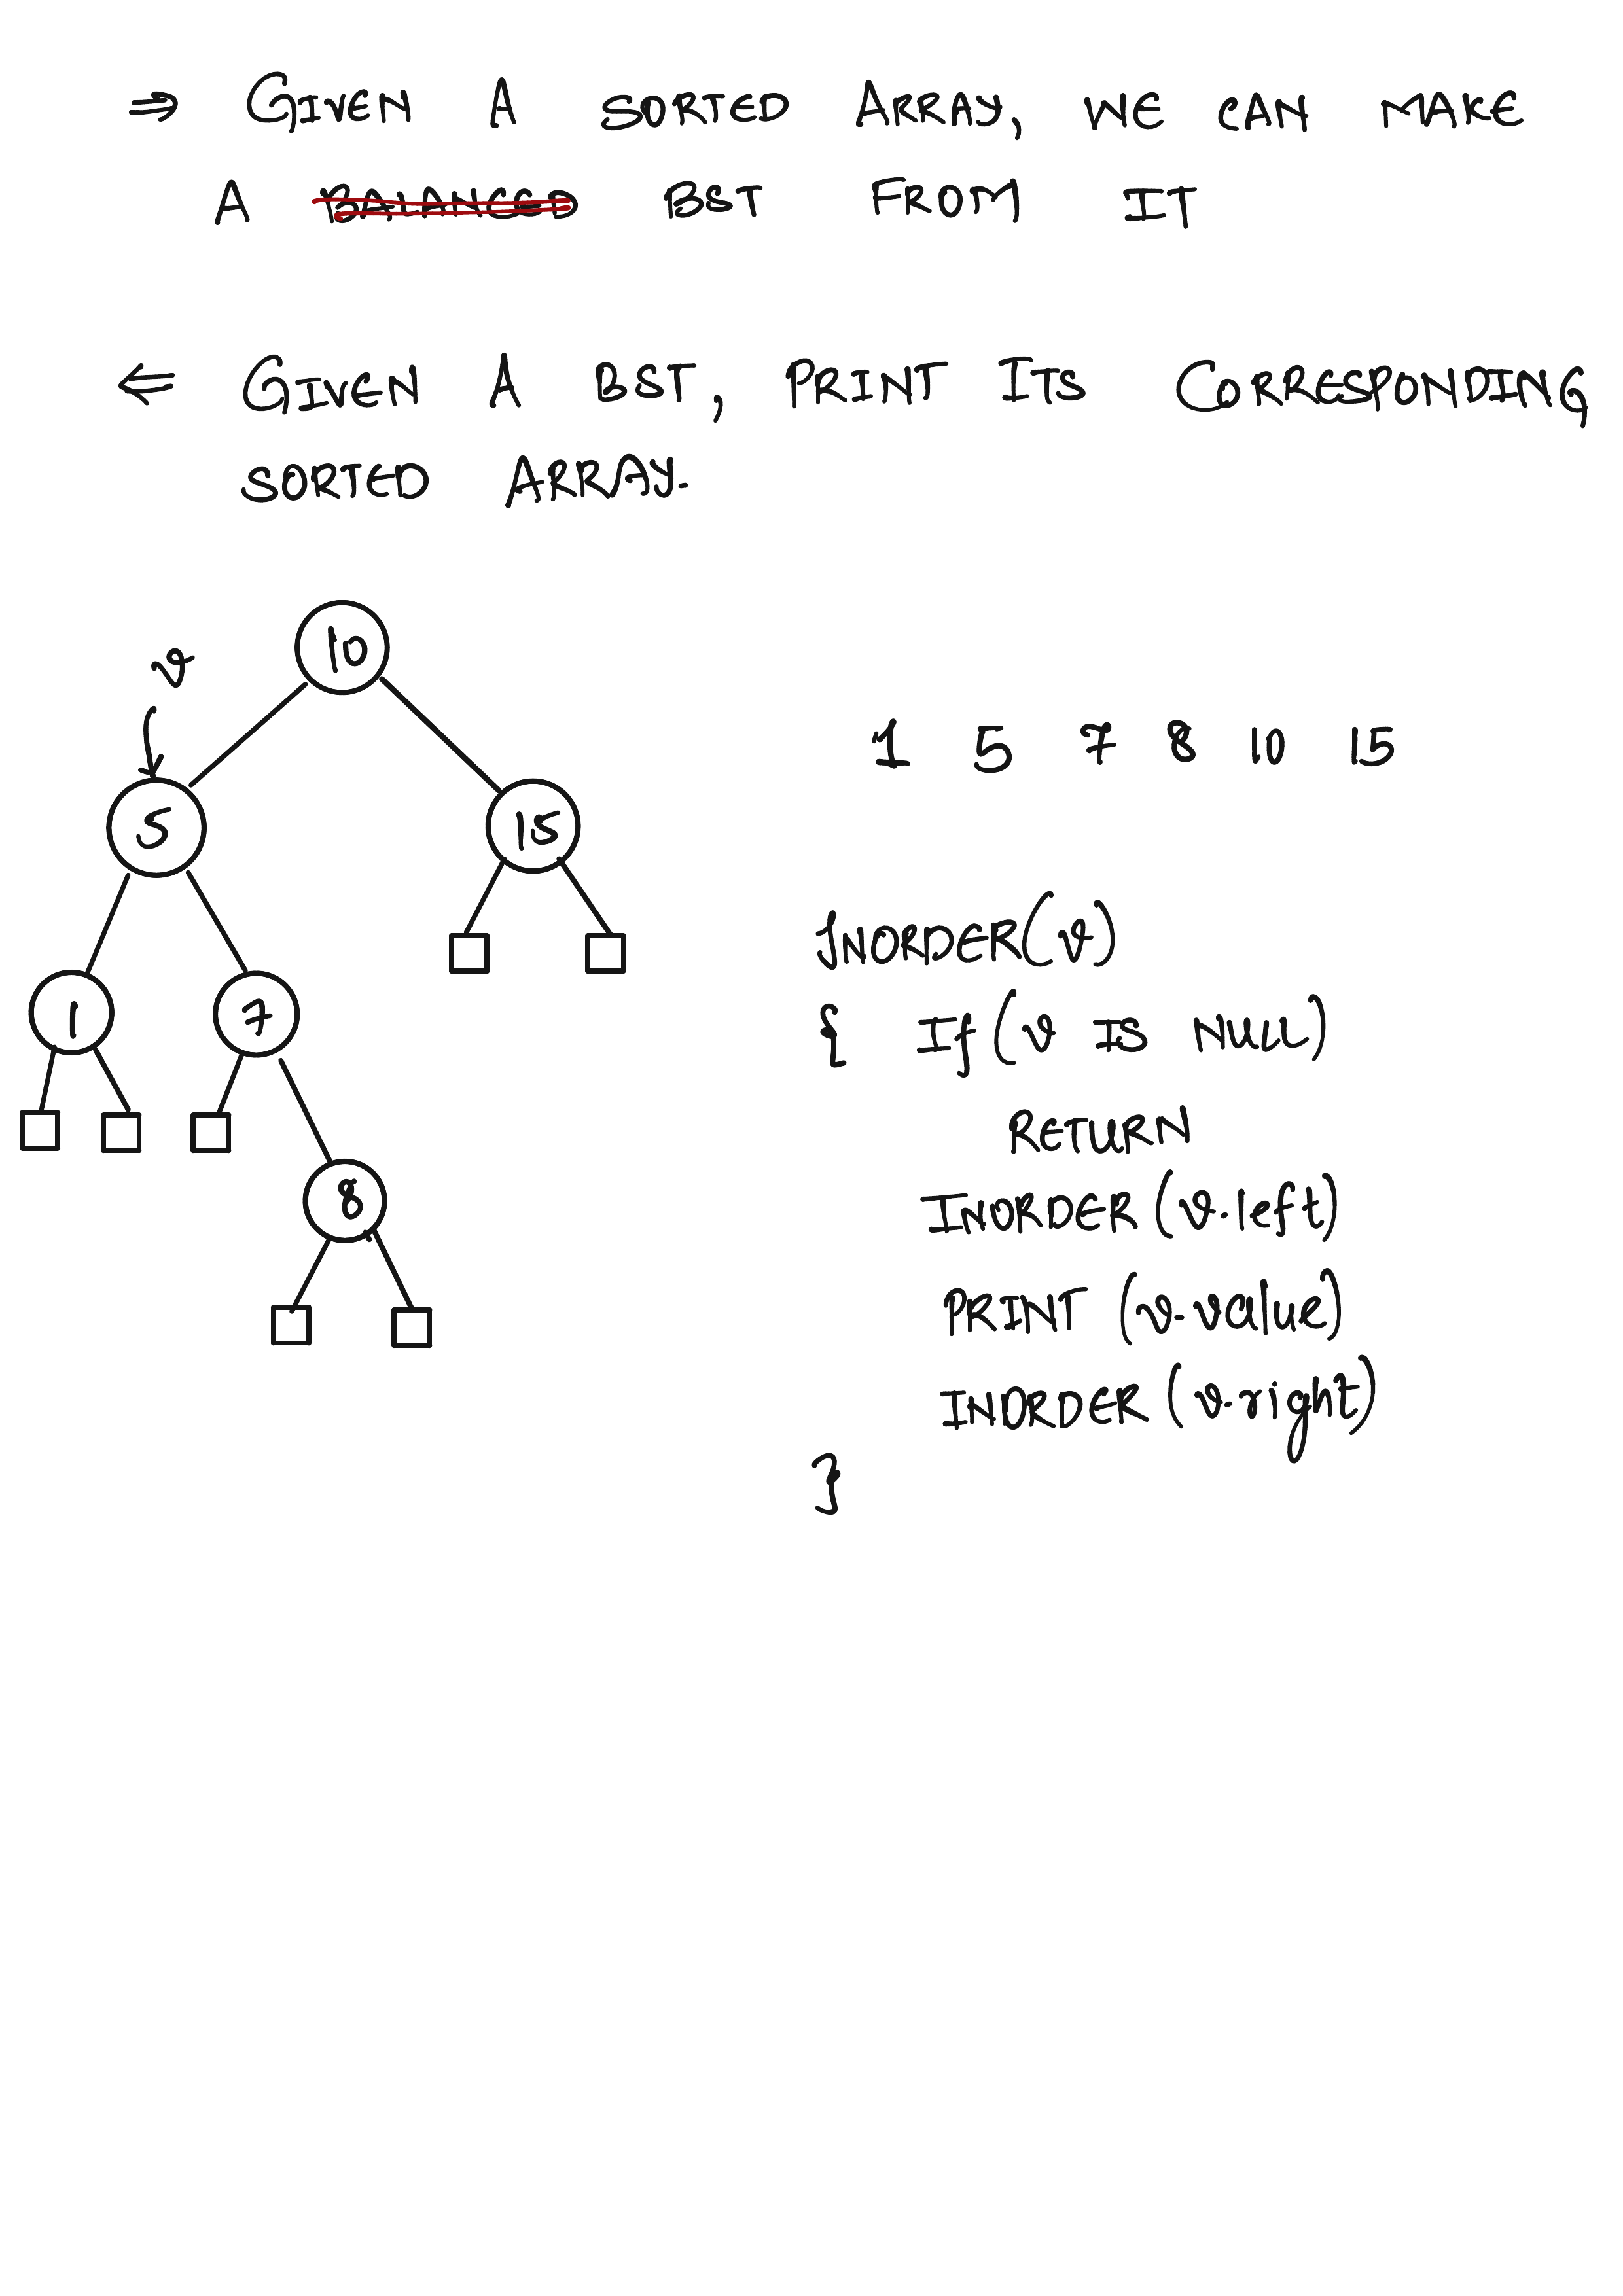 ⇒ GIVEN A SORTED ARRAY, WE CAN MAKE
A BALANCED BST FROM IT
⇐ GIVEN A BST, PRINT ITS CORRESPONDING
SORTED ARRAY.
10
v
5
15
1
7
8
1 5 7 8 10 15
INORDER(v)
{ If (v IS NULL)
RETURN
INORDER (v.left)
PRINT (v.value)
INORDER (v.right)
}